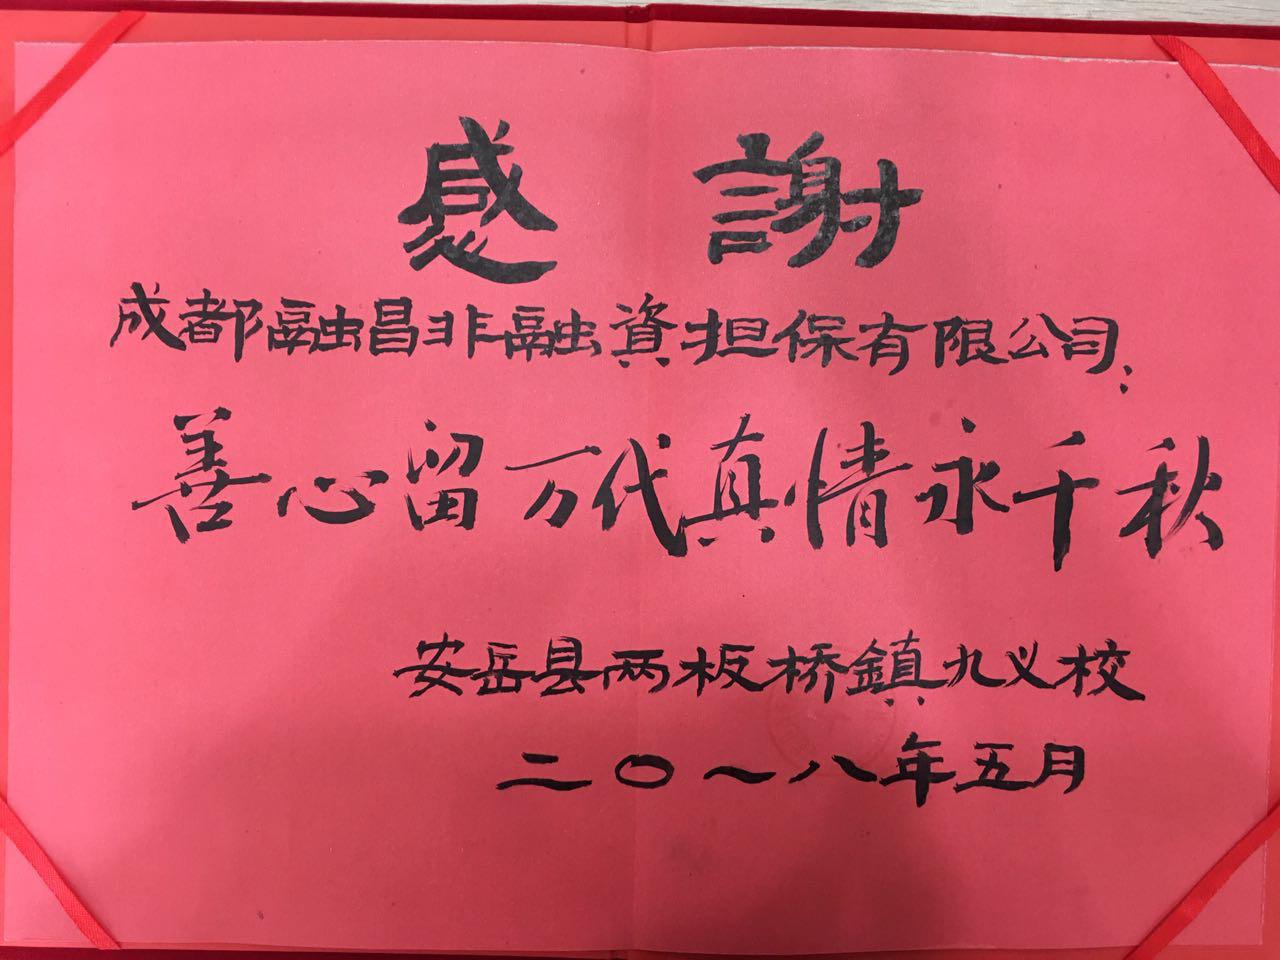 感謝
成都融昌非融資担保有限公司:
善心留万代真情永千秋
安岳县两板桥鎮九义校
二〇一八年五月